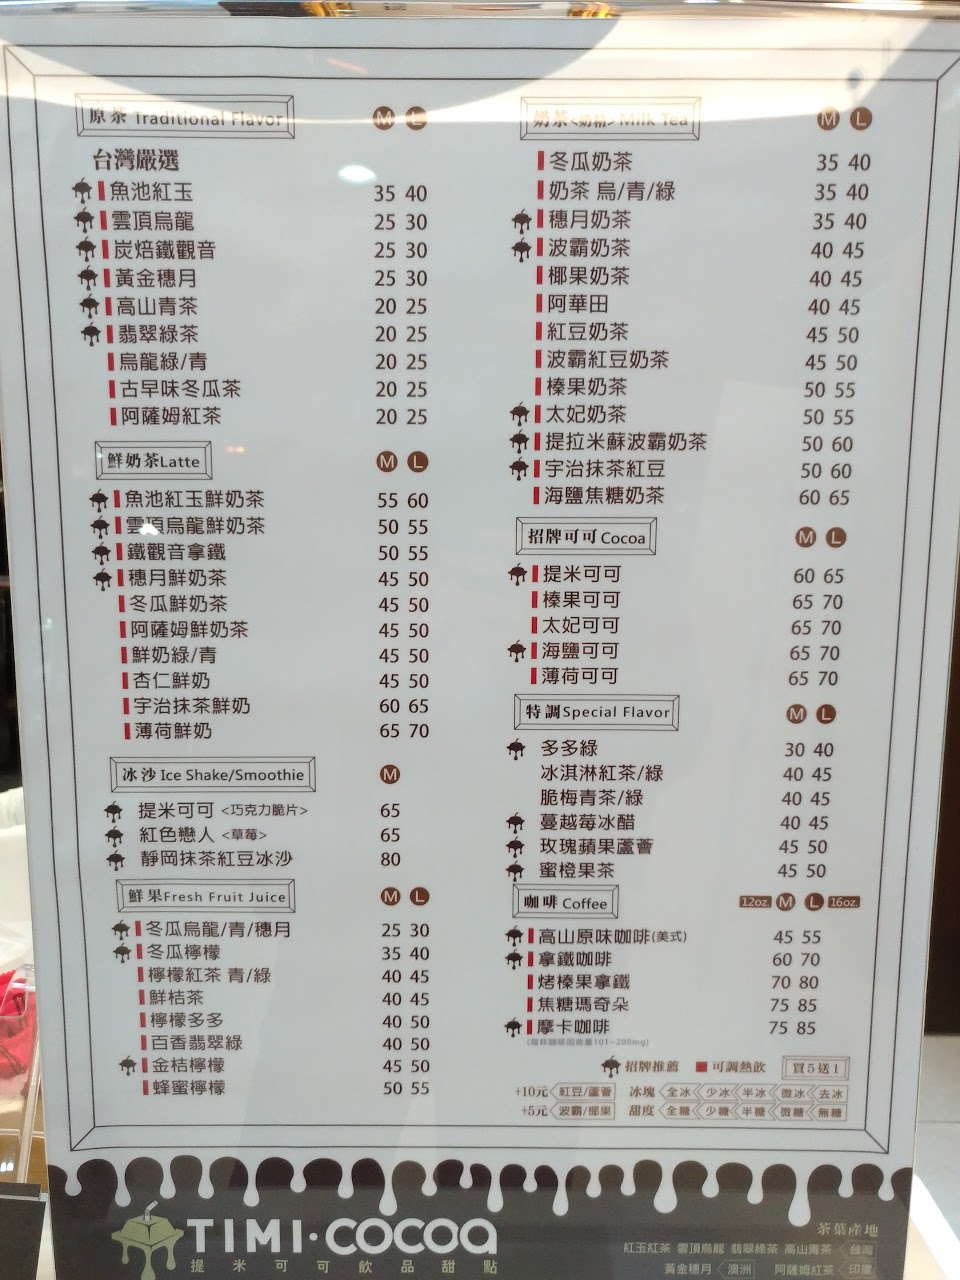 原茶 Traditional Flavor M L
台灣嚴選
魚池紅玉 35 40
雲頂烏龍 25 30
炭焙鐵觀音 25 30
黃金穗月 25 30
高山青茶 20 25
翡翠綠茶 20 25
烏龍綠/青 20 25
古早味冬瓜茶 20 25
阿薩姆紅茶 20 25
鮮奶茶Latte M L
魚池紅玉鮮奶茶 55 60
雲頂烏龍鮮奶茶 50 55
鐵觀音拿鐵 50 55
穗月鮮奶茶 45 50
冬瓜鮮奶茶 45 50
阿薩姆鮮奶茶 45 50
鮮奶綠/青 45 50
杏仁鮮奶 45 50
宇治抹茶鮮奶 60 65
薄荷鮮奶 65 70
冰沙 Ice Shake/Smoothie M
提米可可 <巧克力脆片> 65
紅色戀人 <草莓> 65
靜岡抹茶紅豆冰沙 80
鮮果Fresh Fruit Juice M L
冬瓜烏龍/青/穗月 25 30
冬瓜檸檬 35 40
檸檬紅茶 青/綠 40 45
鮮桔茶 40 45
檸檬多多 40 50
百香翡翠綠 40 50
金桔檸檬 45 50
蜂蜜檸檬 50 55
奶茶<奶精> Milk Tea M L
冬瓜奶茶 35 40
奶茶 烏/青/綠 35 40
穗月奶茶 35 40
波霸奶茶 40 45
椰果奶茶 40 45
阿華田 40 45
紅豆奶茶 45 50
波霸紅豆奶茶 45 50
榛果奶茶 50 55
太妃奶茶 50 55
提拉米蘇波霸奶茶 50 60
宇治抹茶紅豆 50 60
海鹽焦糖奶茶 60 65
招牌可可 Cocoa M L
提米可可 60 65
榛果可可 65 70
太妃可可 65 70
海鹽可可 65 70
薄荷可可 65 70
特調Special Flavor M L
多多綠 30 40
冰淇淋紅茶/綠 40 45
脆梅青茶/綠 40 45
蔓越莓冰醋 40 45
玫瑰蘋果蘆薈 45 50
蜜橙果茶 45 50
咖啡 Coffee 12oz. M L 16oz.
高山原味咖啡(美式) 45 55
拿鐵咖啡 60 70
烤榛果拿鐵 70 80
焦糖瑪奇朵 75 85
摩卡咖啡 75 85
(每杯咖啡因含量101~200mg)
招牌推薦 可調熱飲 買5送1
+10元 紅豆/蘆薈 冰塊 全冰 少冰 半冰 微冰 去冰
+5元 波霸/椰果 甜度 全糖 少糖 半糖 微糖 無糖
TIMI·COCOA
提米可可飲品甜點
茶葉產地
紅玉紅茶 雲頂烏龍 翡翠綠茶 高山青茶 台灣
黃金穗月 澳洲 阿薩姆紅茶 印度